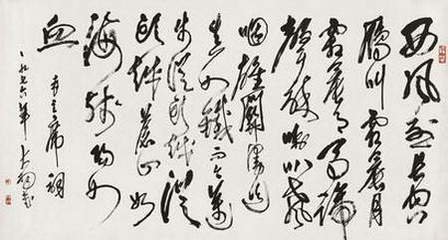 西风烈长空
雁叫霜晨月
霜晨月马蹄
声碎喇叭声
咽雄关漫道
真如铁而今迈
步从头越从
头越苍山如
海残阳如
血
毛主席词
一九七六年